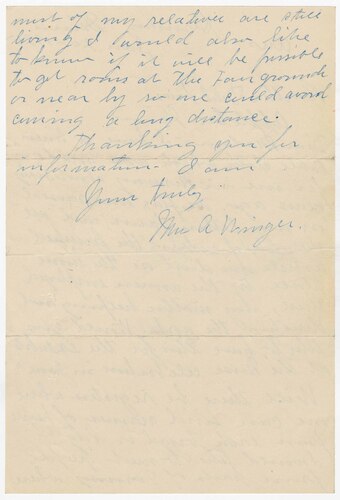 most of my relatives are still
living I would also like
to know if it will be possible
to get rooms at the Fairgrounds
or near by so one could avoid
coming a long distance.
Thanking you for
information. I am
Your truly
Mrs A